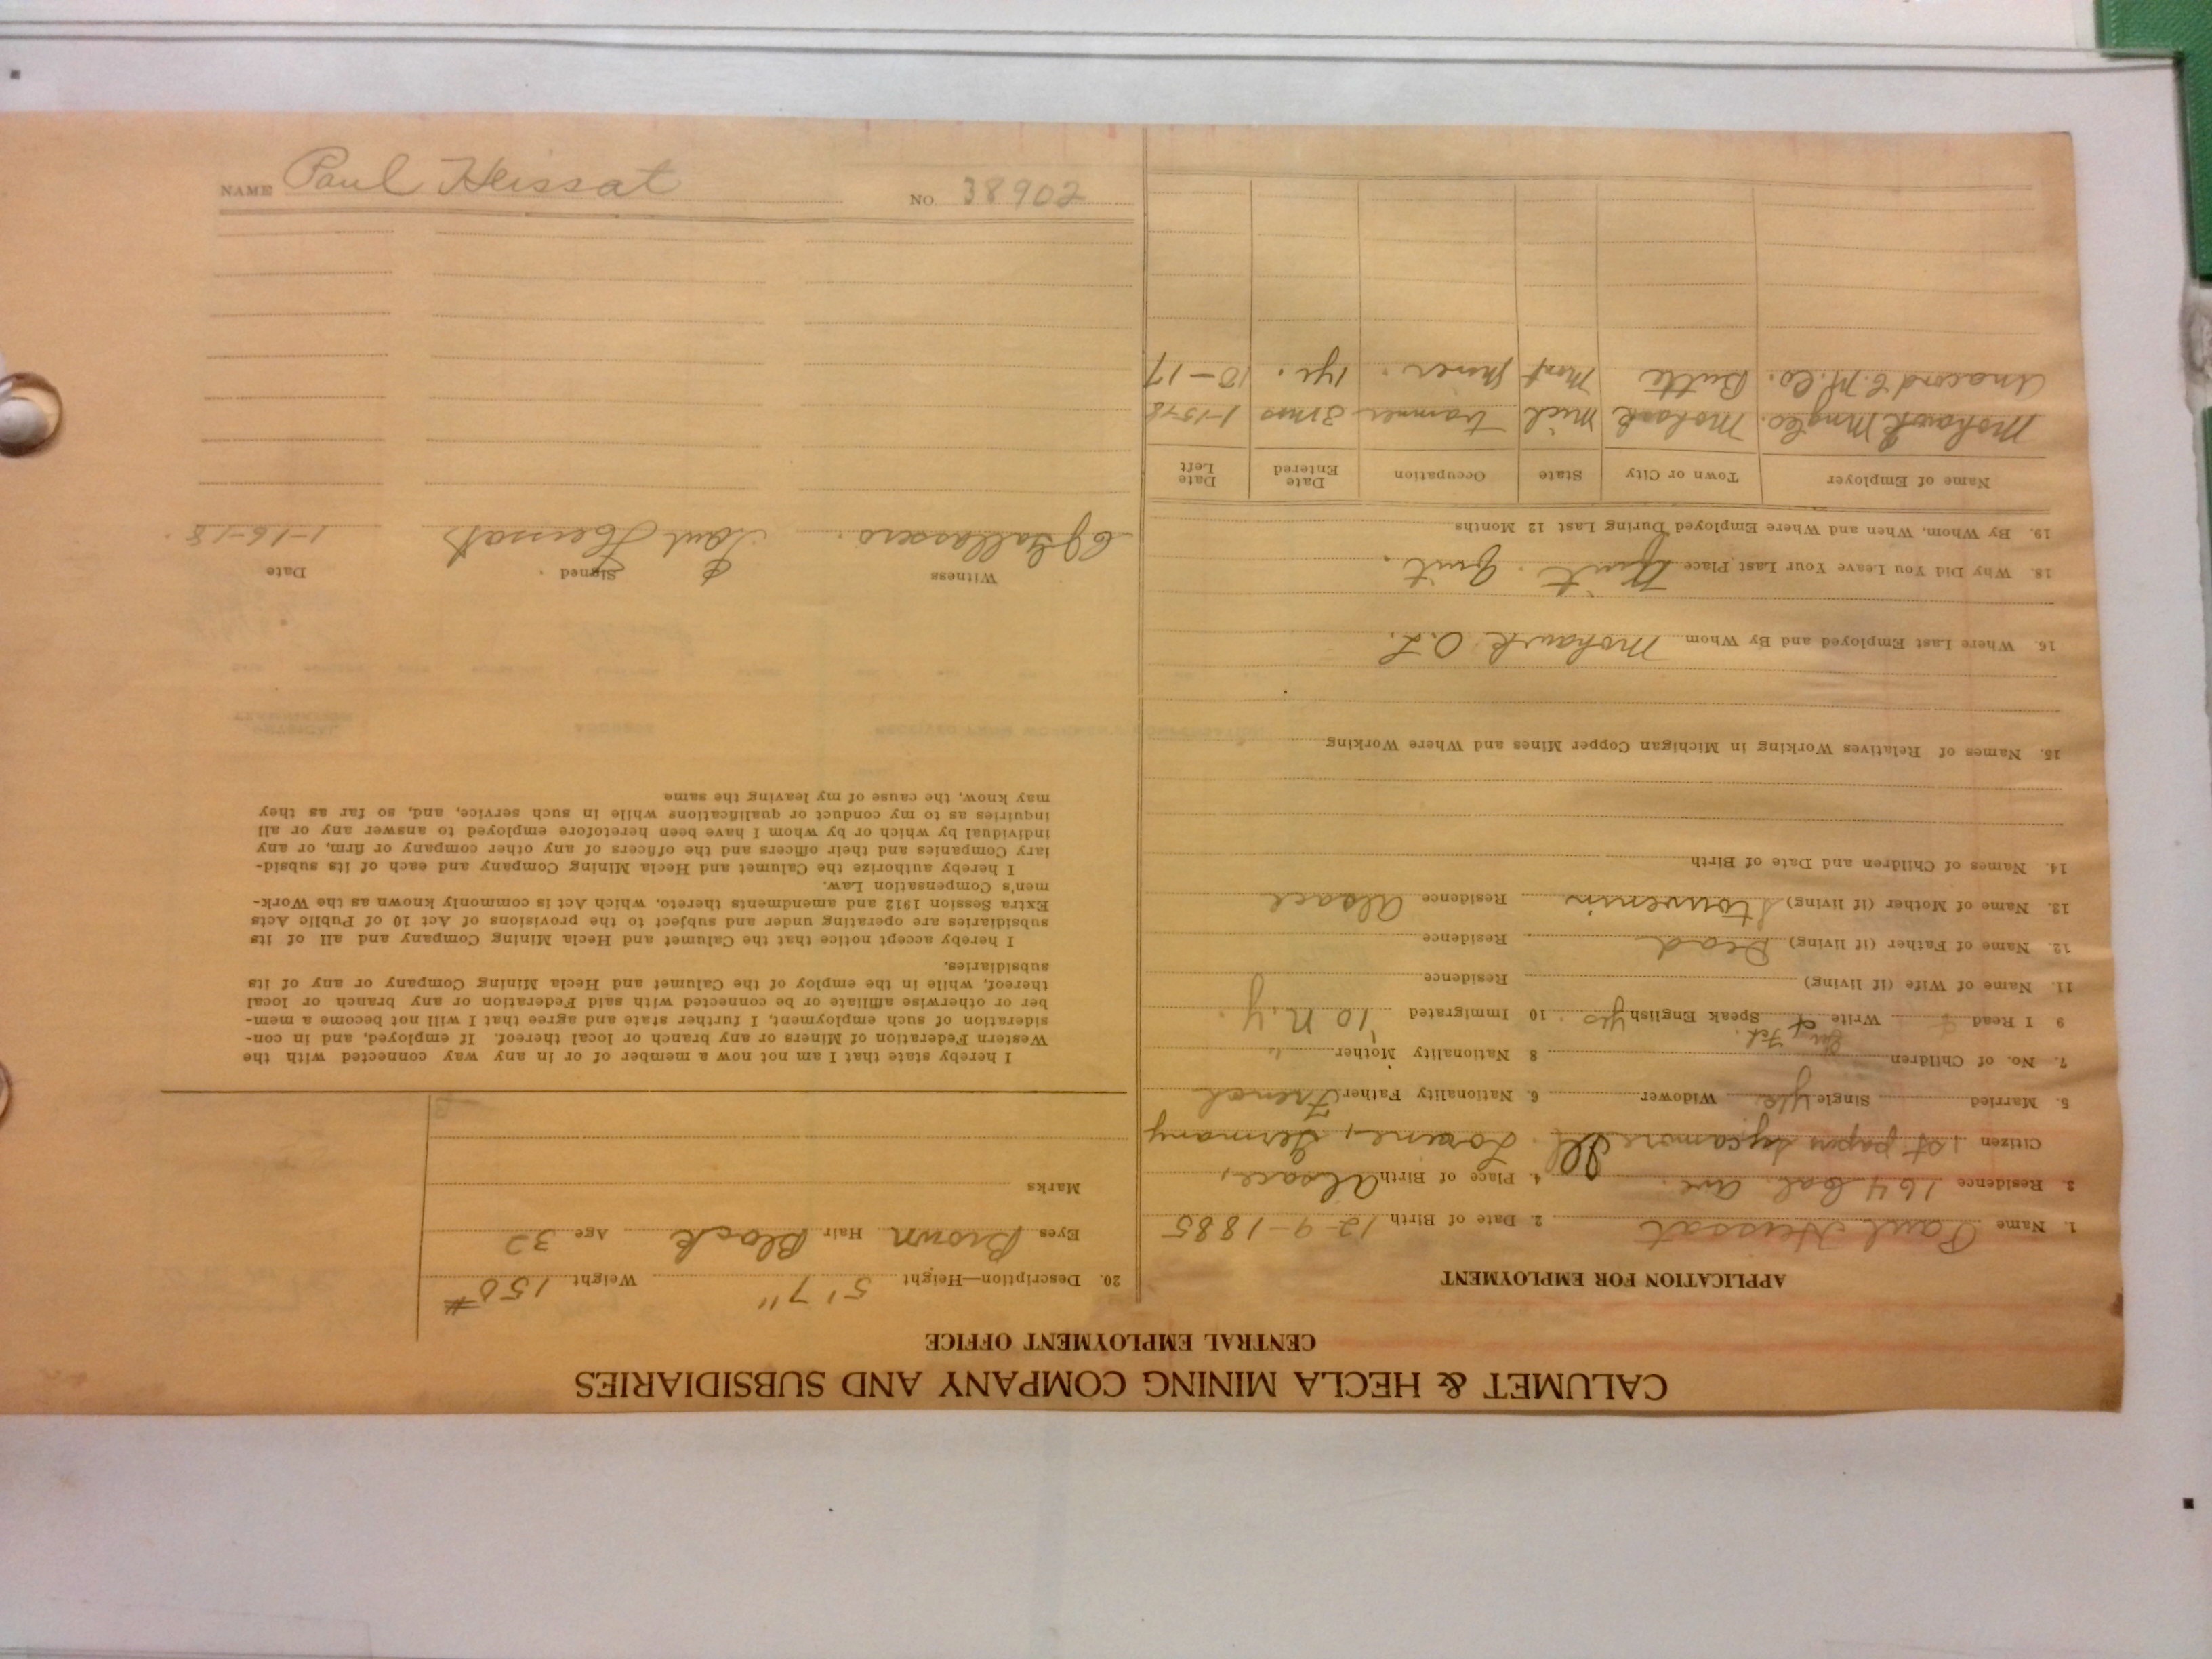 CALUMET & HECLA MINING COMPANY AND SUBSIDIARIES
CENTRAL EMPLOYMENT OFFICE
APPLICATION FOR EMPLOYMENT
1. Name Paul Heissat 2. Date of Birth 12-9-1885
3. Residence 164 Cal. ave. 4. Place of Birth Alsace,
Citizen 1st papers Sycamore Ill Loraine, Germany
5. Married Single yes Widower 6. Nationality Father French
7. No. of Children 8 Nationality Mother "
9 I Read Write Speak English yes 10 Immigrated '10 N.Y.
11. Name of Wife (if living) Residence
12. Name of Father (if living) Dead Residence
13. Name of Mother (if living) Residence Alsace
14. Names of Children and Date of Birth
15. Names of Relatives Working in Michigan Copper Mines and Where Working
16. Where Last Employed and By Whom Mohawk O.L.
18. Why Did You Leave Your Last Place Quit. Quit.
19. By Whom, When and Where Employed During Last 12 Months
Name of Employer Town or City State Occupation Date Entered Date Left
Mohawk Mng Co. Mohawk Mich trammer 3 mos 1-15-18
Anacond C. M. Co. Butte Mont Miner. 1 yr. 10-17
20. Description—Height 5' 7" Weight 150 #
Eyes Brown Hair Black Age 32
Marks
I hereby state that I am not now a member of or in any way connected with the
Western Federation of Miners or any branch or local thereof. If employed, and in con-
sideration of such employment, I further state and agree that I will not become a mem-
ber or otherwise affiliate or be connected with said Federation or any branch or local
thereof, while in the employ of the Calumet and Hecla Mining Company or any of its
subsidiaries.
I hereby accept notice that the Calumet and Hecla Mining Company and all of its
subsidiaries are operating under and subject to the provisions of Act 10 of Public Acts
Extra Session 1912 and amendments thereto, which Act is commonly known as the Work-
men's Compensation Law.
I hereby authorize the Calumet and Hecla Mining Company and each of its subsid-
iary Companies and their officers and the officers of any other company or firm, or any
individual by which or by whom I have been heretofore employed to answer any or all
inquiries as to my conduct or qualifications while in such service, and, so far as they
may know, the cause of my leaving the same
Witness Signed Date
Paul Heissat 1-16-18
NAME Paul Heissat NO 38902